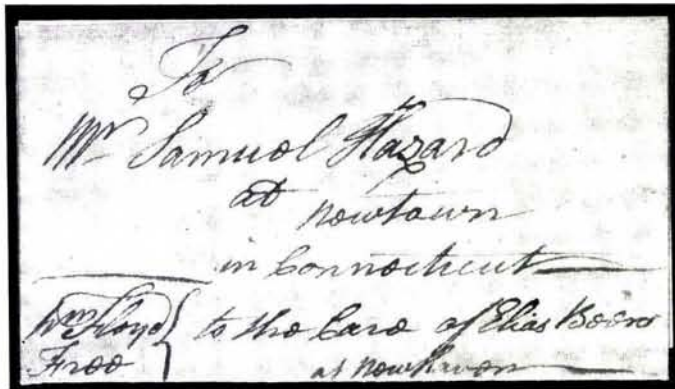 To
Mr Samuel Hazard
at Newtown
in Connecticut
Wm Floyd } to the Care of Elias Beers
Free at Newhaven